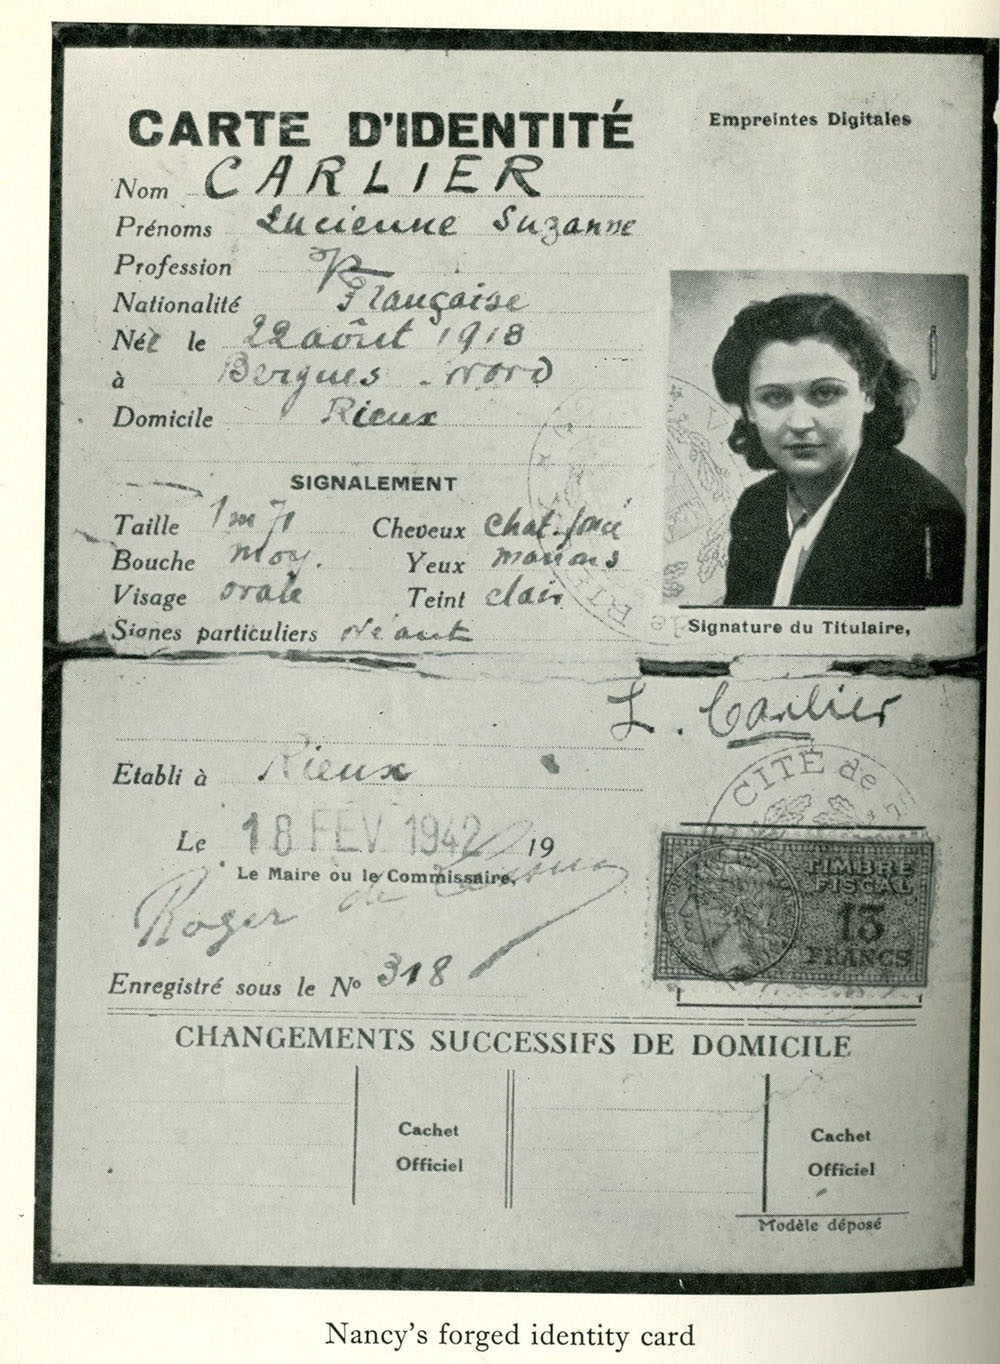 CARTE D'IDENTITÉ
Empreintes Digitales
Nom CARLIER
Prénoms Lucienne Suzanne
Profession
Nationalité Française
Née le 22 août 1918
à Bergues Nord
Domicile Rieux
SIGNALEMENT
Taille 1m71 Cheveux chat. foncé
Bouche moy. Yeux marrons
Visage ovale Teint clair
Signes particuliers Néant
Signature du Titulaire,
L. Carlier
Etabli à Rieux
CITÉ de
Le 18 FEV 1942 19
Le Maire ou le Commissaire,
Roger de
TIMBRE
FISCAL
13
FRANCS
Enregistré sous le Nº 318
CHANGEMENTS SUCCESSIFS DE DOMICILE
Cachet
Officiel
Cachet
Officiel
Modèle déposé
Nancy's forged identity card